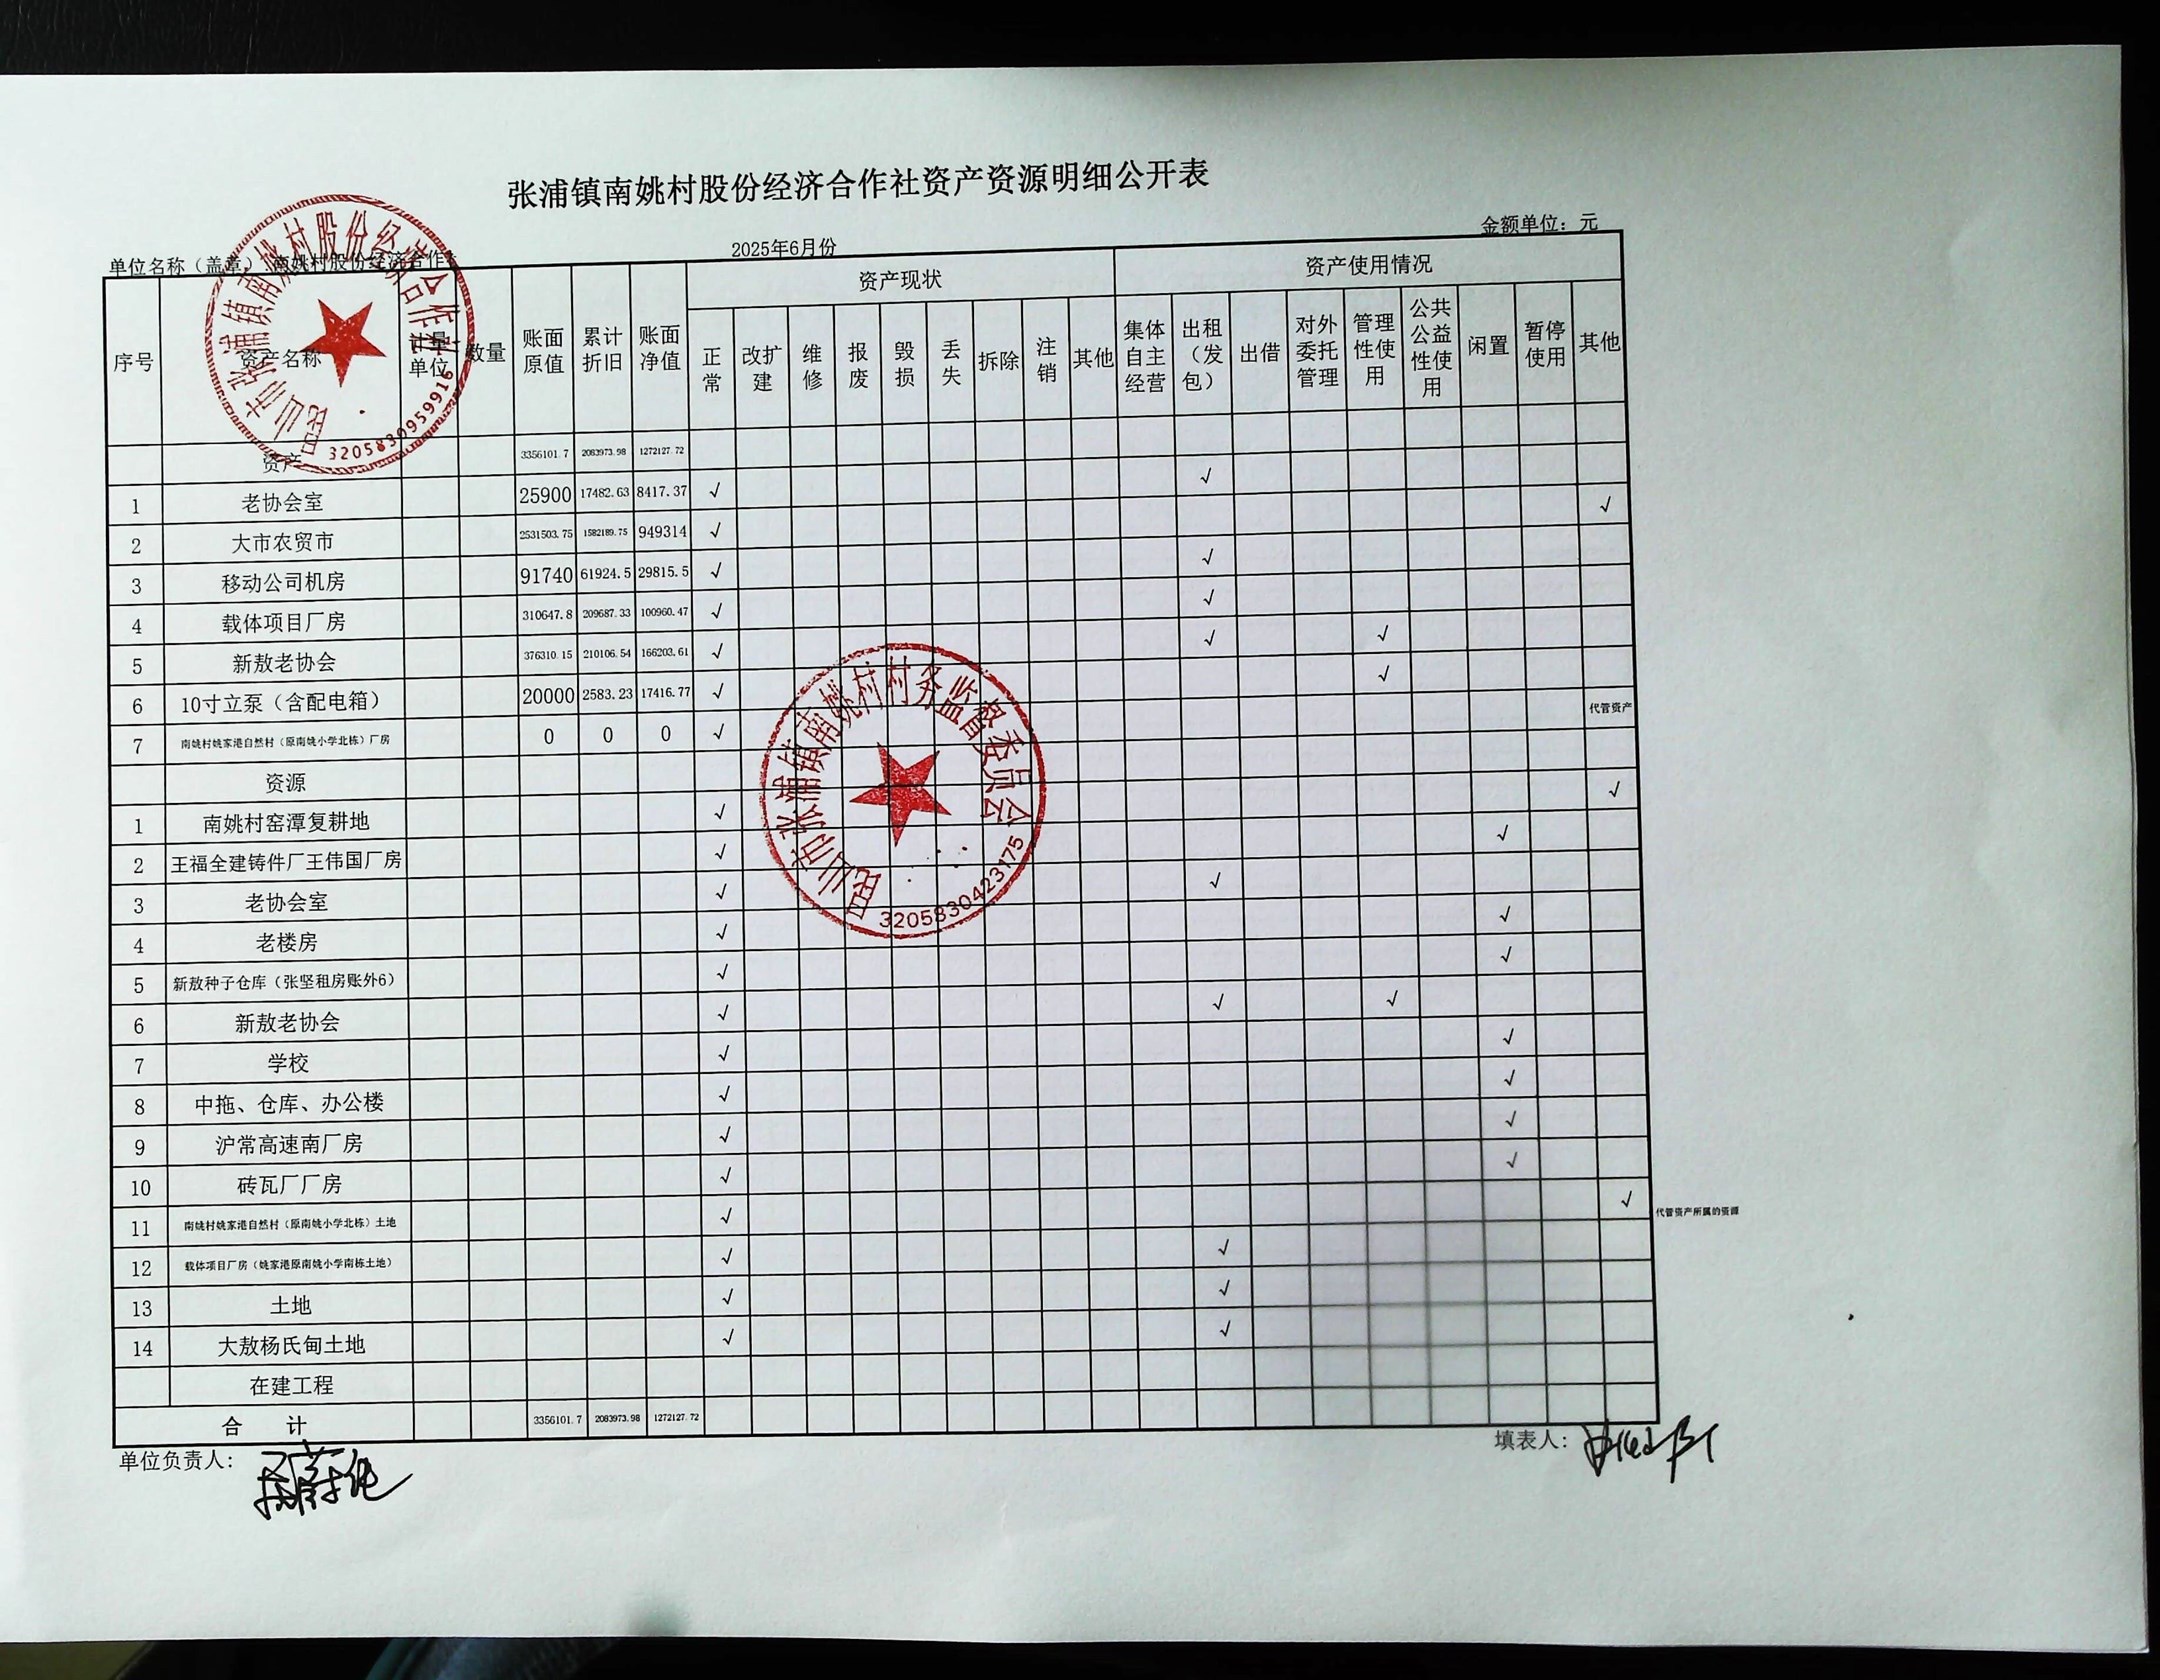 张浦镇南姚村股份经济合作社资产资源明细公开表
单位名称（盖章）：南姚村股份经济合作 2025年6月份 金额单位：元
序号 资产名称 计量单位 数量 账面原值 累计折旧 账面净值 资产现状 资产使用情况
正常 改扩建 维修 报废 毁损 丢失 拆除 注销 其他 集体自主经营 出租（发包） 出借 对外委托管理 管理性使用 公共公益性使用 闲置 暂停使用 其他
资产 3356101.7 2083973.98 1272127.72
1 老协会室 25900 17482.63 8417.37 √ √
2 大市农贸市 2531503.75 1582189.75 949314 √ √
3 移动公司机房 91740 61924.5 29815.5 √ √
4 载体项目厂房 310647.8 209687.33 100960.47 √ √
5 新敖老协会 376310.15 210106.54 166203.61 √ √ √
6 10寸立泵（含配电箱） 20000 2583.23 17416.77 √ √
7 南姚村姚家港自然村（原南姚小学北栋）厂房 0 0 0 √ 代管资产
资源
1 南姚村窑潭复耕地 √ √
2 王福全建铸件厂王伟国厂房 √ √
3 老协会室 √ √
4 老楼房 √ √
5 新敖种子仓库（张坚租房账外6） √ √
6 新敖老协会 √ √ √
7 学校 √ √
8 中拖、仓库、办公楼 √ √
9 沪常高速南厂房 √ √
10 砖瓦厂厂房 √ √
11 南姚村姚家港自然村（原南姚小学北栋）土地 √ √ 代管资产所属的资源
12 载体项目厂房（姚家港原南姚小学南栋土地） √ √
13 土地 √ √
14 大敖杨氏甸土地 √ √
在建工程
合 计 3356101.7 2083973.98 1272127.72
单位负责人： 填表人：
昆山市张浦镇南姚村股份经济合作社
3205830959916
昆山市张浦镇南姚村村务监督委员会
3205830423175